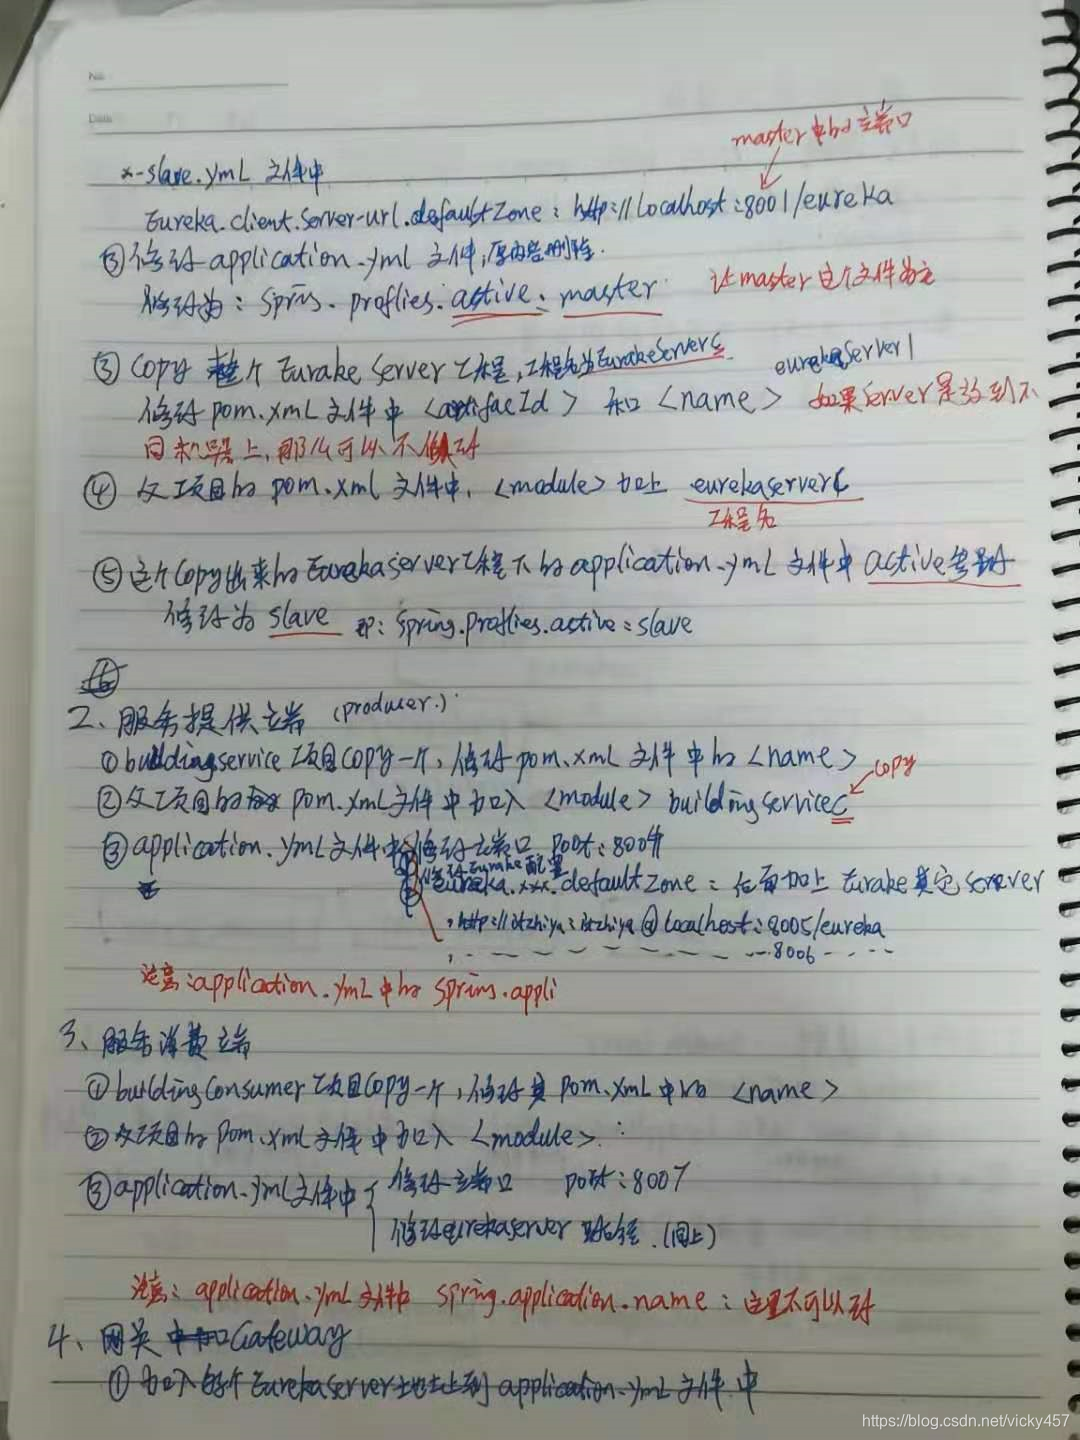 No.
Date
master中的主端口
*-slave.yml 文件中
Eureka.client.Server-url.defaultZone: http://localhost:8001/eureka
③修改application.yml 文件,原内容删除.
修改为: Spris. proflies. active: master 让master这个文件为主
③ Copy 整个 Eurake Server 工程,工程名为EurakeServerC eurekaServer1
修改pom.xml 文件中 <artifacId> 和 <name> 如果Server是放到不
同机器上,那么可以不修改
④ 父项目的 pom.xml 文件中, <module> 加上 eurekaserverC
工程名
⑤ 这个Copy出来的Eurekaserver工程下的application.yml 文件中 active
修改为 slave 即: Spring.proflies.active:slave
2、服务提供端 (producer.)
①buildingservice项目Copy一个,修改pom.xml 文件中的<name>
copy
②父项目的 pom.xml文件中加入 <module> buildingserviceC
③application.yml文件中 修改端口 port:8004
修改Eurake配置
eureka.xxx.defaultZone: 后面加上 Eurake其它server
,http://itzhiya:itzhiya@localhost:8005/eureka
, 8006
注意:application.yml中的 Spring.appli
3、服务消费端
①buildingConsumer项目Copy一个,修改其pom.xml中的 <name>
②父项目的pom.xml文件中加入 <module>.
③application.yml文件中 修改端口 port:8007
修改eurekaserver 路径.(同上)
注意: application.yml文件中 spring.application.name: 这里不可以改
4、网关 Gateway
① 加入每个Eurekaserver地址到 application.yml文件中
https://blog.csdn.net/vicky457